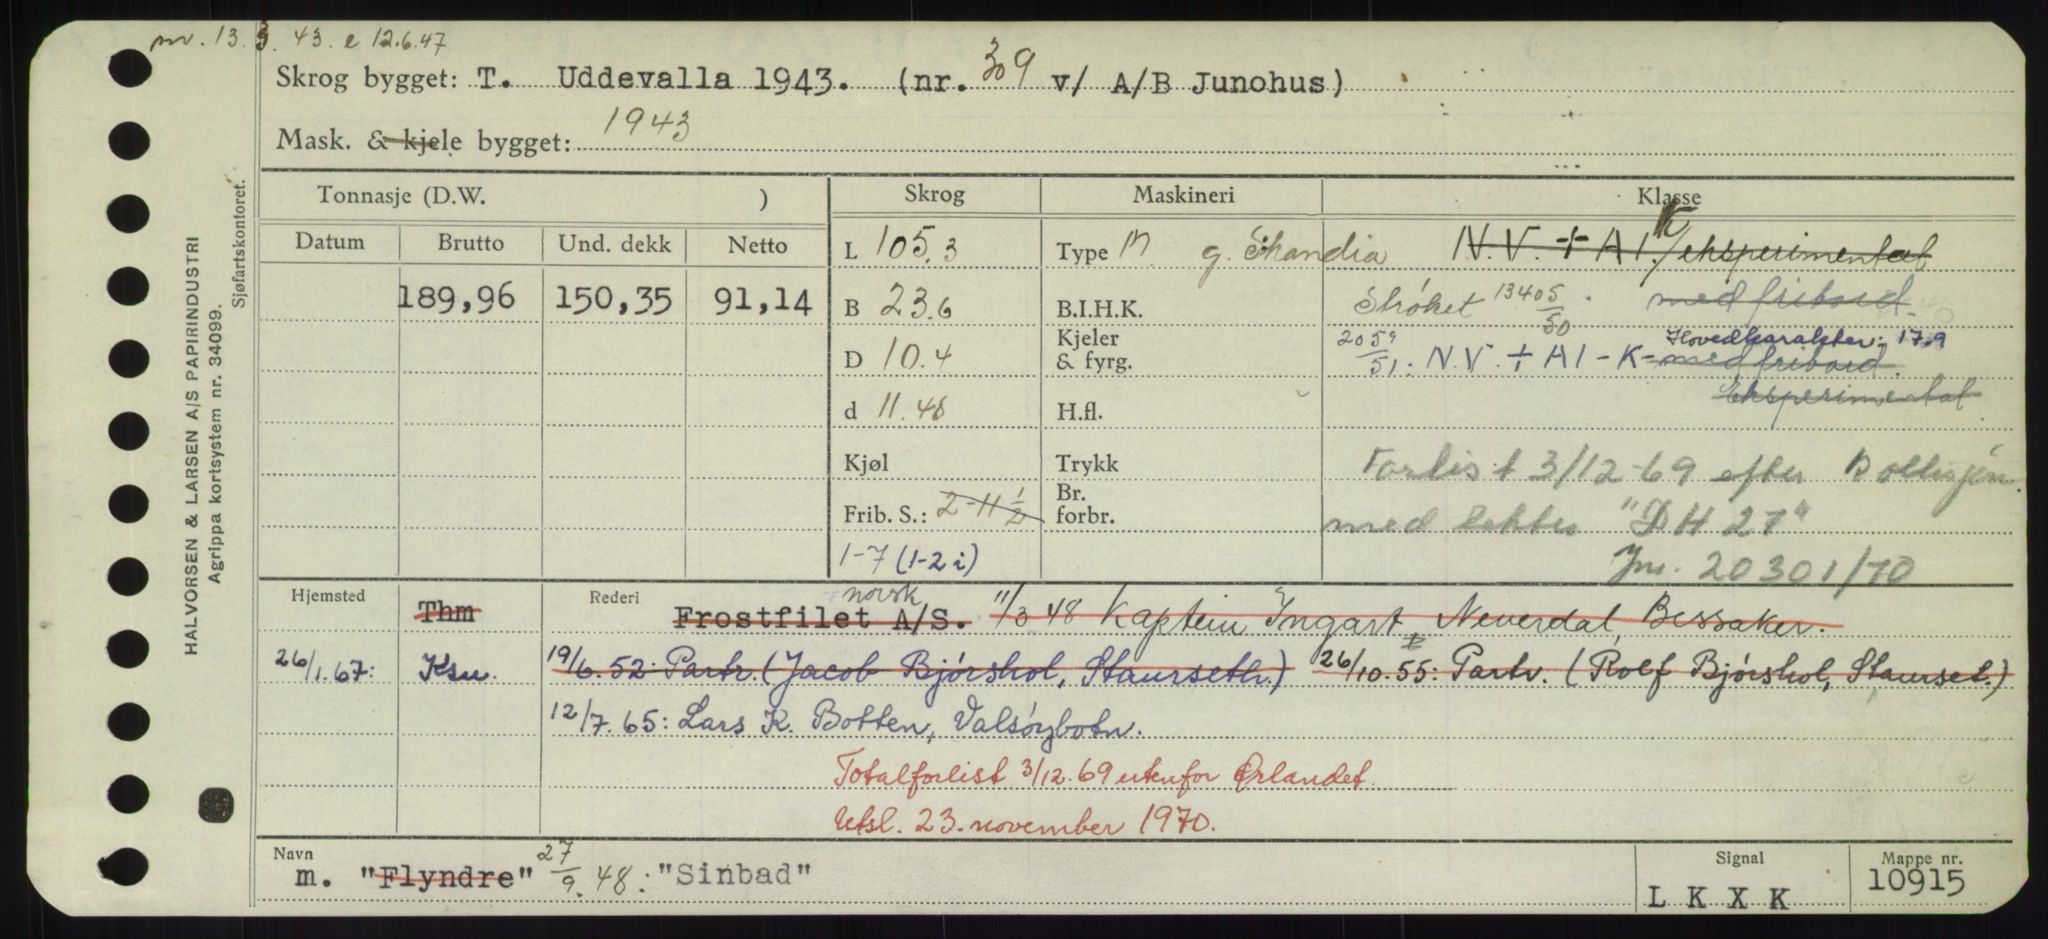 nr. 13.3.43. e 12.6.47
Skrog bygget: T. Uddevalla 1943. (nr. 309 v/ A/B Junohus)
Mask. & kjele bygget: 1943
Tonnasje (D.W. ) Skrog Maskineri Klasse
Datum Brutto Und. dekk Netto
L 105,3 Type m g. Skandia N.V. + A1. K/eksperimentat
189,96 150,35 91,14 B 23.6 B.I.H.K. Strøket 13405/50. med fribord.
D 10.4 Kjeler & fyrg. 2059/51: N.V. + A1 - K - med fribord. Hovedkarakter: 17.9
Eksperimentat
d 11.48 H.fl.
Kjøl Trykk Forlist 3/12-69 efter kollisjon
Frib. S.: 2-11 1/2 Br. forbr. med lekter "DH 27"
1-7 (1-2 i) Jnr. 20301/70
Hjemsted Thm Rederi Frostfilet norsk A/S. 11/3 48 Kaptein Ingart Neverdal, Bessaker.
26/1.67: Ksu. 19/6.52: Partr. (Jacob Bjørshol, Staurseth.) 26/10.55: Partr. (Rolf Bjørshol, Staurset.)
12/7.65: Lars K. Botten, Valsøybotn.
Totalforlist 3/12.69 utenfor Ørlandet.
Utsl. 23. november 1970.
Navn m. "Flyndre" 27/9.48: "Sinbad"
Signal LKXK
Mappe nr. 10915
HALVORSEN & LARSEN A/S PAPIRINDUSTRI
Agrippa kortsystem nr. 34099.
Sjøfartskontoret.